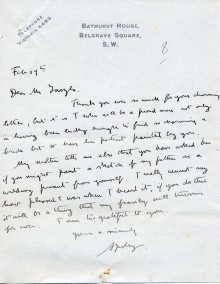 TELEPHONE
VICTORIA 6483.
BATHURST HOUSE,
BELGRAVE SQUARE,
S.W.
8
Feb 19th
Dear Mr
Thank you ever so much for your charming
letter, but it is I who will be proud not only
in having been lucky enough to find so charming a
bride but to have her portrait painted by you.
My mother tells me also that you have asked her
if you might paint a sketch of my father as a
wedding present from yourself. I really cannot say
how pleased I was when I heard it, if you do this
it will be a thing that my family will treasure
for ever. I am so grateful to you.
Yours sincerely